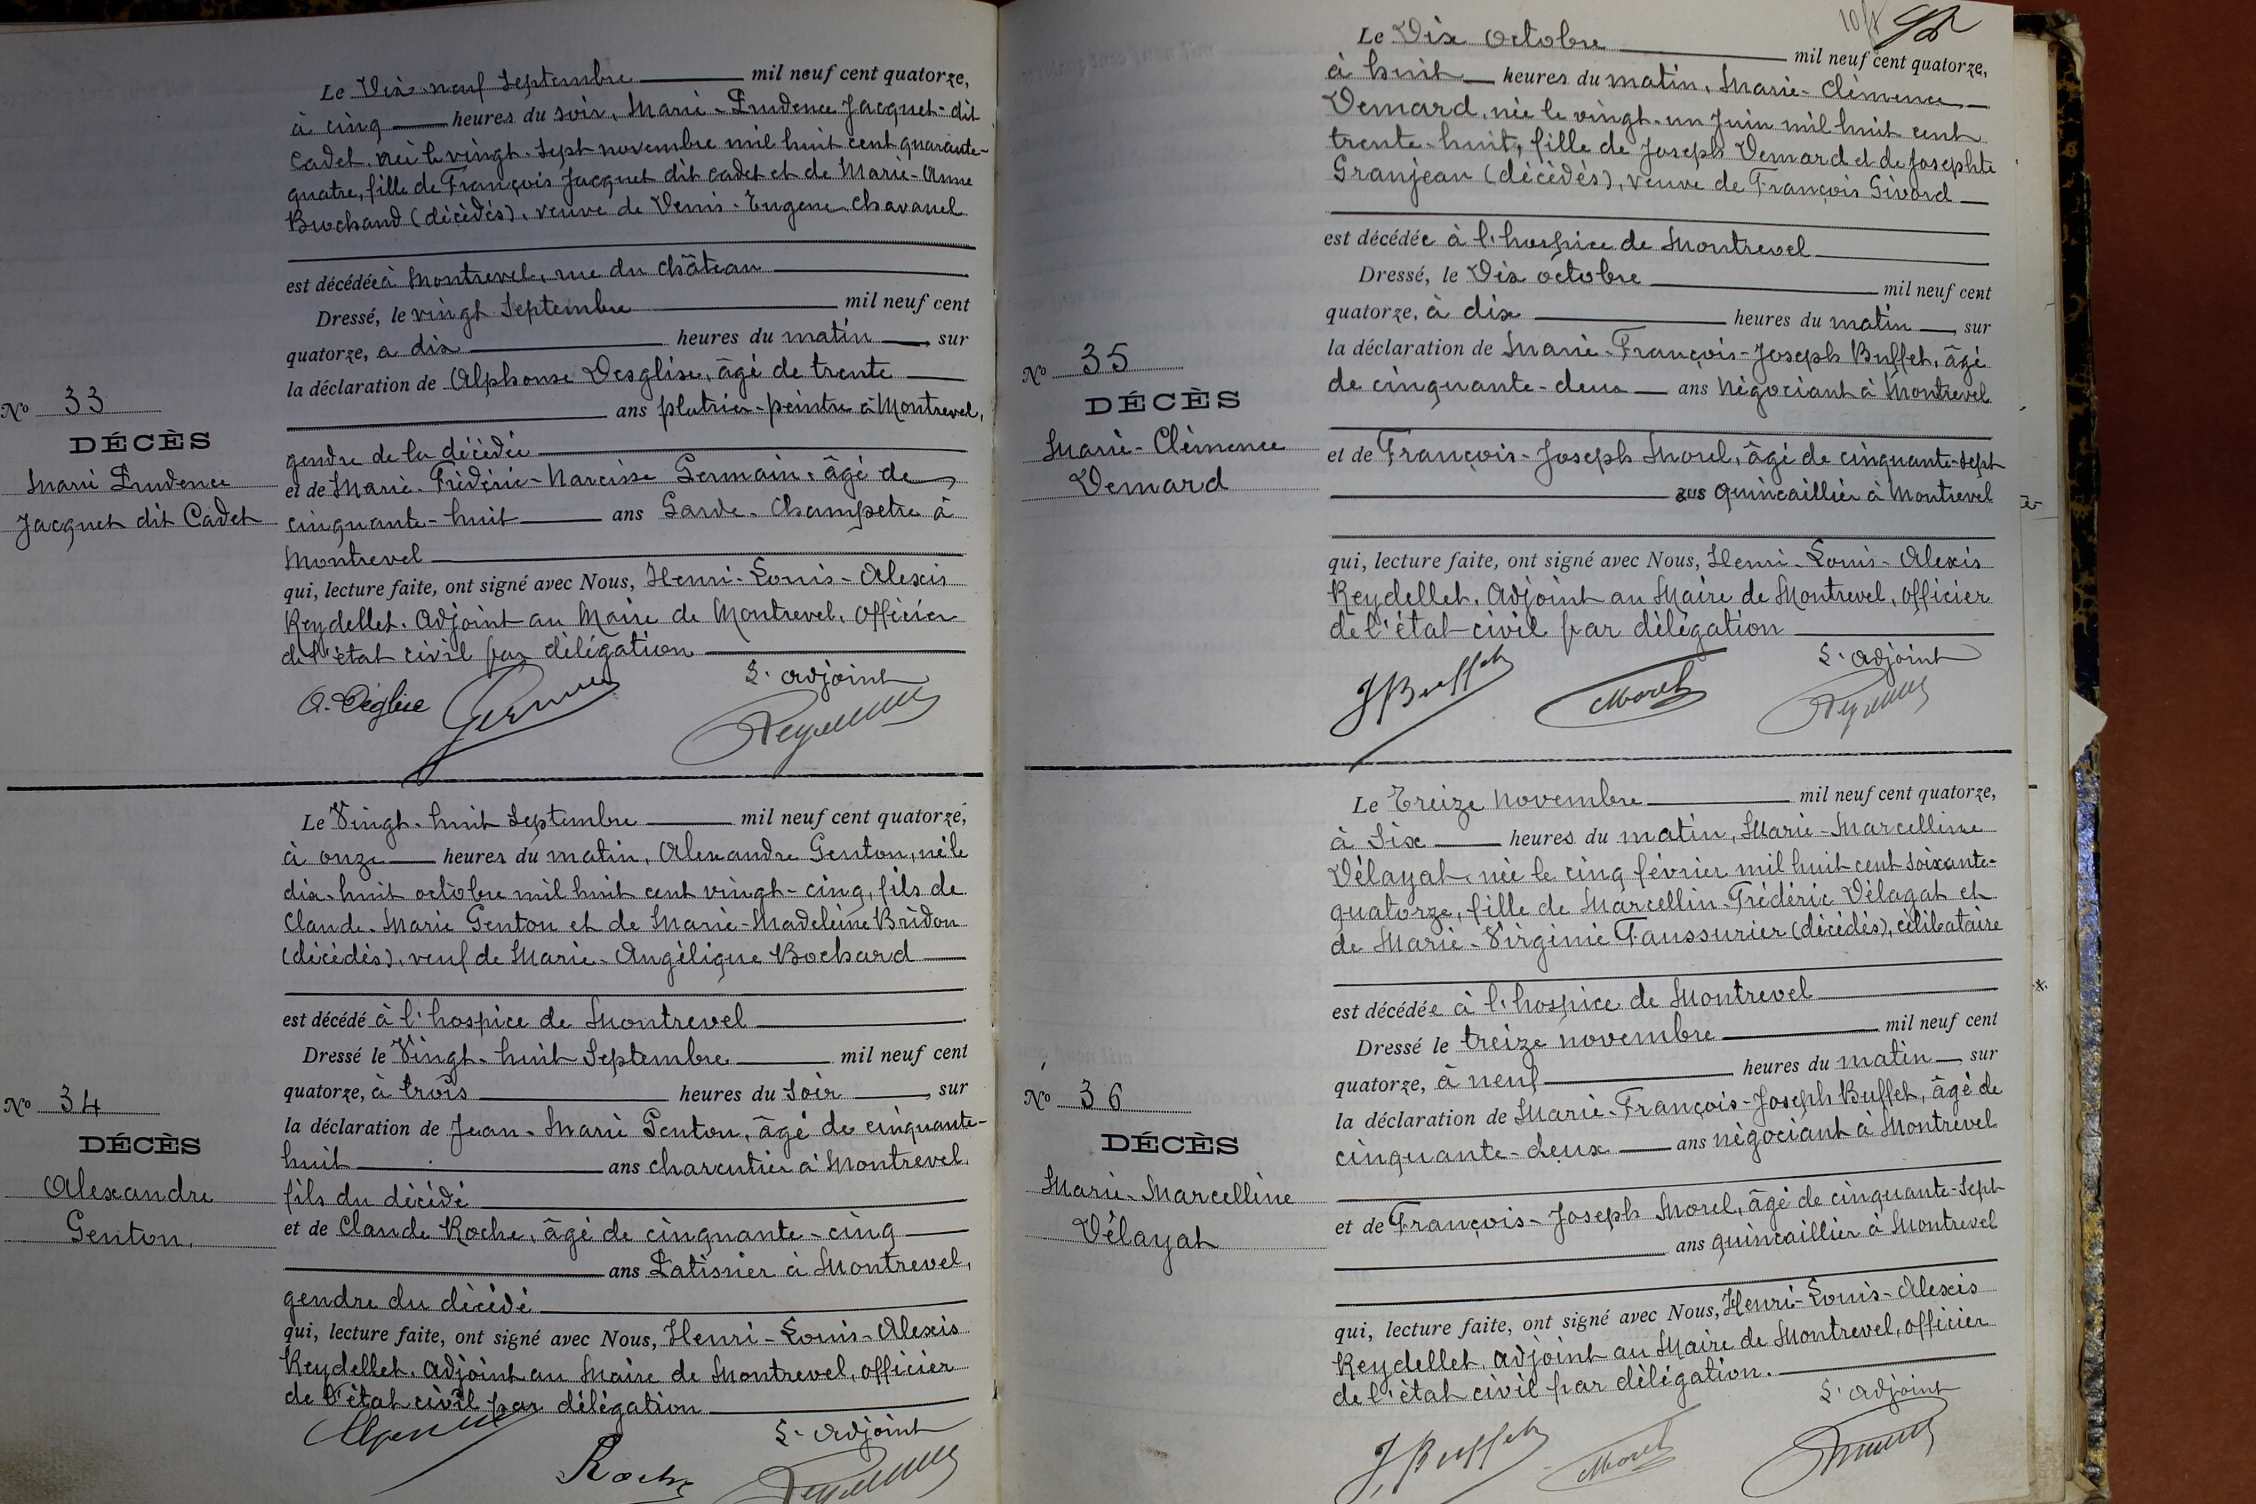 Le Dix-neuf Septembre mil neuf cent quatorze,
à cinq heures du soir, Marie-Prudence Jacquet-dit
Cadet, née le vingt-sept novembre mil huit cent quarante-
quatre, fille de François Jacquet dit Cadet et de Marie-Anne
Buchand (décédés), veuve de Denis-Eugène Chavanel
est décédée à Montrevel, rue du Château
Dressé, le vingt Septembre mil neuf cent
quatorze, a dix heures du matin, sur
la déclaration de Alphonse Desglise, âgé de trente
ans platrier-peintre à Montrevel,
gendre de la décédée
et de Marie-Frédéric-Narcisse Germain, âgé de
cinquante-huit ans Garde-Champetre à
Montrevel
qui, lecture faite, ont signé avec Nous, Henri-Louis-Alexis
Reydellet, Adjoint au Maire de Montrevel, officier
de l'état civil par délégation
L'adjoint
A. Déglise
No 33
DÉCÈS
Marie Prudence
Jacquet dit Cadet
Le Vingt-huit Septembre mil neuf cent quatorze,
à onze heures du matin, Alexandre Genton, né le
dix-huit octobre mil huit cent vingt-cinq, fils de
Claude-Marie Genton et de Marie-Madeleine Bridon
(décédés), veuf de Marie-Angélique Bochard
est décédé à l'hospice de Montrevel
Dressé le Vingt-huit Septembre mil neuf cent
quatorze, à trois heures du Soir, sur
la déclaration de Jean-Marie Genton, âgé de cinquante-
huit ans charcutier à Montrevel,
fils du décédé
et de Claude Roche, âgé de cinquante-cinq
ans Patissier à Montrevel,
gendre du décédé
qui, lecture faite, ont signé avec Nous, Henri-Louis-Alexis
Reydellet, Adjoint au Maire de Montrevel, officier
de l'état civil par délégation
L'adjoint
Roche
No 34
DÉCÈS
Alexandre
Genton
Le Dix octobre mil neuf cent quatorze,
à huit heures du matin, Marie-Clémence
Demard, née le vingt-un Juin mil huit cent
trente-huit, fille de Joseph Demard et de Josephte
Granjean (décédés), veuve de François Givord
est décédée à l'hospice de Montrevel
Dressé, le Dix octobre mil neuf cent
quatorze, à dix heures du matin, sur
la déclaration de Marie-François-Joseph Buffet, âgé
de cinquante-deux ans Négociant à Montrevel
et de François-Joseph Morel, âgé de cinquante-sept
ans quincaillier à Montrevel
qui, lecture faite, ont signé avec Nous, Henri-Louis-Alexis
Reydellet, Adjoint au Maire de Montrevel, officier
de l'état-civil par délégation
L'adjoint
J Buffet Morel
No 35
DÉCÈS
Marie-Clémence
Demard
Le Treize novembre mil neuf cent quatorze,
à Six heures du matin, Marie-Marcelline
Vélayat, née le cinq février mil huit cent soixante-
quatorze, fille de Marcellin-Frédéric Vélayat et
de Marie-Virginie Faussurier (décédés), célibataire
est décédée à l'hospice de Montrevel
Dressé le treize novembre mil neuf cent
quatorze, à neuf heures du matin, sur
la déclaration de Marie-François-Joseph Buffet, âgé de
cinquante-deux ans négociant à Montrevel
et de François-Joseph Morel, âgé de cinquante-sept
ans quincaillier à Montrevel
qui, lecture faite, ont signé avec Nous, Henri-Louis-Alexis
Reydellet, adjoint au Maire de Montrevel, officier
de l'état civil par délégation.
L'adjoint
J. Buffet Morel
No 36
DÉCÈS
Marie-Marcelline
Vélayat